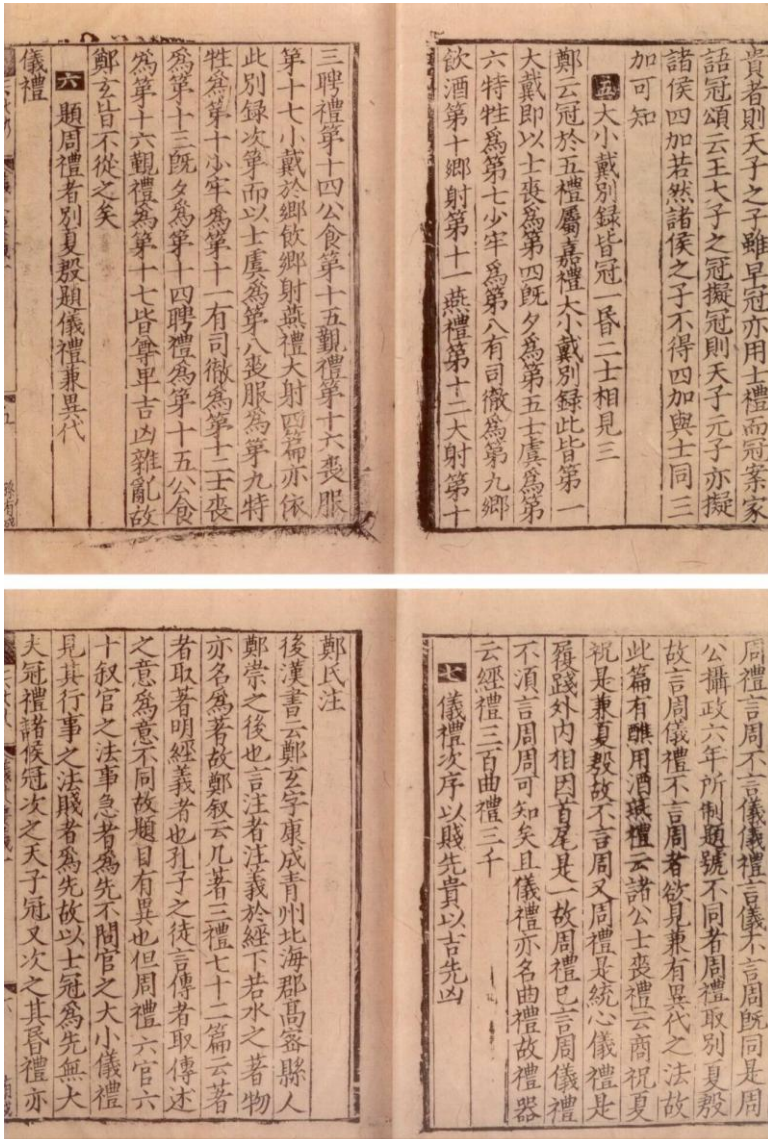 貴者則天子之子雖早冠亦用士禮而冠案家
語冠頌云王大子之冠擬冠則天子元子亦擬
諸侯四加若然諸侯之子不得四加與士同三
加可知
五 大小戴別録皆冠一昏二士相見三
鄭云冠於五禮屬嘉禮大小戴別録此皆第一
大戴即以士喪爲第四旣夕爲第五士虞爲第
六特牲爲第七少牢爲第八有司徹爲第九鄉
飲酒第十鄉射第十一燕禮第十二大射第十
三聘禮第十四公食第十五覲禮第十六喪服
第十七小戴於鄉飲鄉射燕禮大射四篇亦依
此別録次第而以士虞爲第八喪服爲第九特
牲爲第十少牢爲第十一有司徹爲第十二士喪
爲第十三旣夕爲第十四聘禮爲第十五公食
爲第十六覲禮爲第十七皆尊卑吉凶雜亂故
鄭玄皆不從之矣
六 題周禮者別夏殷題儀禮兼異代
儀禮
周禮言周不言儀儀禮言儀不言周旣同是周
公攝政六年所制題號不同者周禮取別夏殷
故言周儀禮不言周者欲見兼有異代之法故
此篇有醮用酒燕禮云諸公士喪禮云商祝夏
祝是兼夏殷故不言周又周禮是統心儀禮是
履踐外内相因首尾是一故周禮已言周儀禮
不須言周周可知矣且儀禮亦名曲禮故禮器
云經禮三百曲禮三千
七 儀禮次序以賤先貴以吉先凶
鄭氏注
後漢書云鄭玄字康成青州北海郡高密縣人
鄭崇之後也言注者注義於經下若水之著物
亦名爲著故鄭叙云凡著三禮七十二篇云著
者取著明經義者也孔子之徒言傳者取傳述
之意爲意不同故題目有異也但周禮六官六
十叙官之法事急者爲先不問官之大小儀禮
見其行事之法賤者爲先故以士冠爲先無大
夫冠禮諸侯冠次之天子冠又次之其昏禮亦